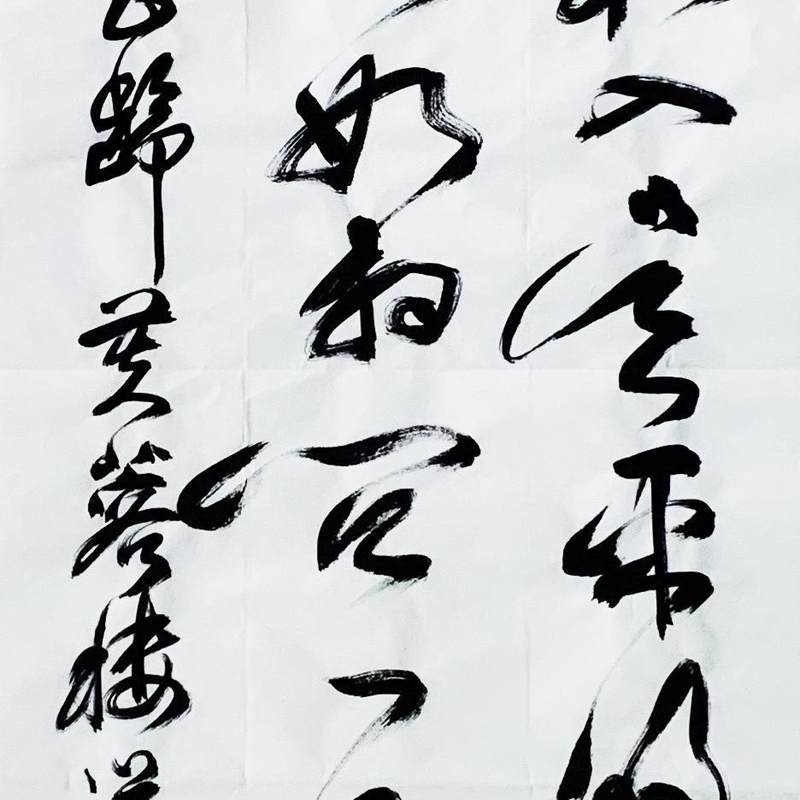 入吴平明
如相问一
龄芙蓉楼